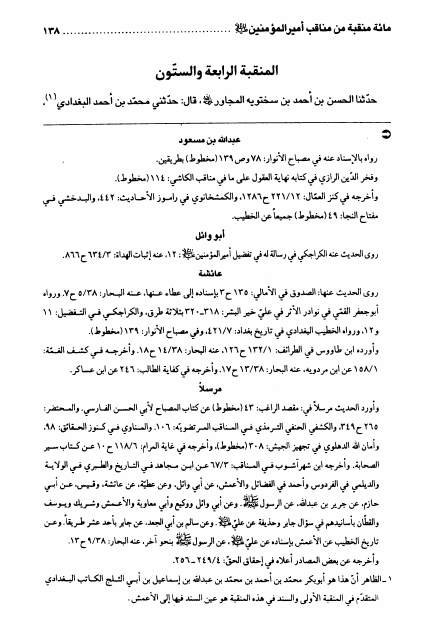 مائة منقبة من مناقب أميرالمؤمنين ﷺ ........................................ ١٣٨
المنقبة الرابعة والستّون
حدّثنا الحسن بن أحمد بن سختويه المجاور ، قال: حدّثني محمّد بن أحمد البغدادي(١)،
عبدالله بن مسعود
رواه بالإسناد عنه في مصباح الأنوار: ٧٨ وص ١٣٩ (مخطوط) بطريقين.
وفخر الدّين الرازي في كتابه نهاية العقول على ما في مناقب الكاشي: ١١٤ (مخطوط).
وأخرجه في كنز العمّال: ٢٢١/١٢ ح١٢٨٦، والكمشخانوي في راموز الأحاديث: ٤٤٢، والبدخشي في
مفتاح النجا: ٤٩ (مخطوط) جميعاً عن الخطيب.
أبو وائل
روى الحديث عنه الكراجكي في رسالة له في تفضيل أميرالمؤمنين : ١٢، عنه إثبات الهداة: ٦٣٤/٣ ح٨٦٦.
عائشة
روى الحديث عنها: الصدوق في الأمالي: ١٣٥ ح٣ بإسناده إلى عطاء عنها، عنه البحار: ٥/٣٨ ح٧. ورواه
أبوجعفر القمّي في نوادر الأثر في عليّ خير البشر: ٣١٨-٣٢٠ بثلاثة طرق، والكراجكي في التفضيل: ١١
و١٢، ورواه الخطيب البغدادي في تاريخ بغداد: ٤٢١/٧، وفي مصباح الأنوار: ١٣٩ (مخطوط).
وأورده ابن طاووس في الطرائف: ١٣٢/١ ح١٢٦، عنه البحار: ١٤/٣٨ ح١٨. وأخرجه في كشف الغمّة:
١٥٨/١ عن ابن مردويه، عنه البحار: ١٣/٣٨ ح١٧. وأخرجه في كفاية الطالب: ٢٤٦ عن ابن عساكر.
مرسلاً
وأورد الحديث مرسلاً في: مقصد الراغب: ٤٣ (مخطوط) عن كتاب المصباح لأبي الحسن الفارسي. والمحتضر:
٢٦٥ ح٣٤٩، والكشفي الحنفي الترمذي في المناقب المرتضويّة: ١٠٦. والمناوي في كنوز الحقائق: ٩٨،
وأمان الله الدهلوي في تجهيز الجيش: ٣٠٨ (مخطوط)، وأخرجه في غاية المرام: ١١٨/٦ ح١٠ عن كتاب سير
الصحابة. وأخرجه ابن شهرآشوب في المناقب: ٦٧/٣ عن ابن مجاهد في التاريخ والطبري في الولاية
والديلمي في الفردوس وأحمد في الفضائل والأعمش، عن أبي وائل. وعن عطيّة، عن عائشة، وقيس، عن أبي
حازم، عن جرير بن عبدالله، عن الرسول ﷺ. وعن أبي وائل ووكيع وأبي معاوية والأعمش وشريك ويوسف
والقطّان بأسانيدهم في سؤال جابر وحذيفة عن عليّ . وعن سالم بن أبي الجعد، عن جابر بأحد عشر طريقاً. وعن
تاريخ الخطيب عن الأعمش بإسناده عن عليّ ، عن الرسول ﷺ بنحو آخر، عنه البحار: ٩/٣٨ ح١٣.
وأخرجه عن بعض المصادر أعلاه في إحقاق الحقّ: ٢٤٩/٤ - ٢٥٦.
١ - الظاهر أنّ هذا هو أبوبكر محمّد بن أحمد بن محمّد بن عبدالله بن إسماعيل بن أبي الثلج الكاتب البغدادي
المتقدّم في المنقبة الأولى والسند في هذه المنقبة هو عين السند فيها إلى الأعمش.